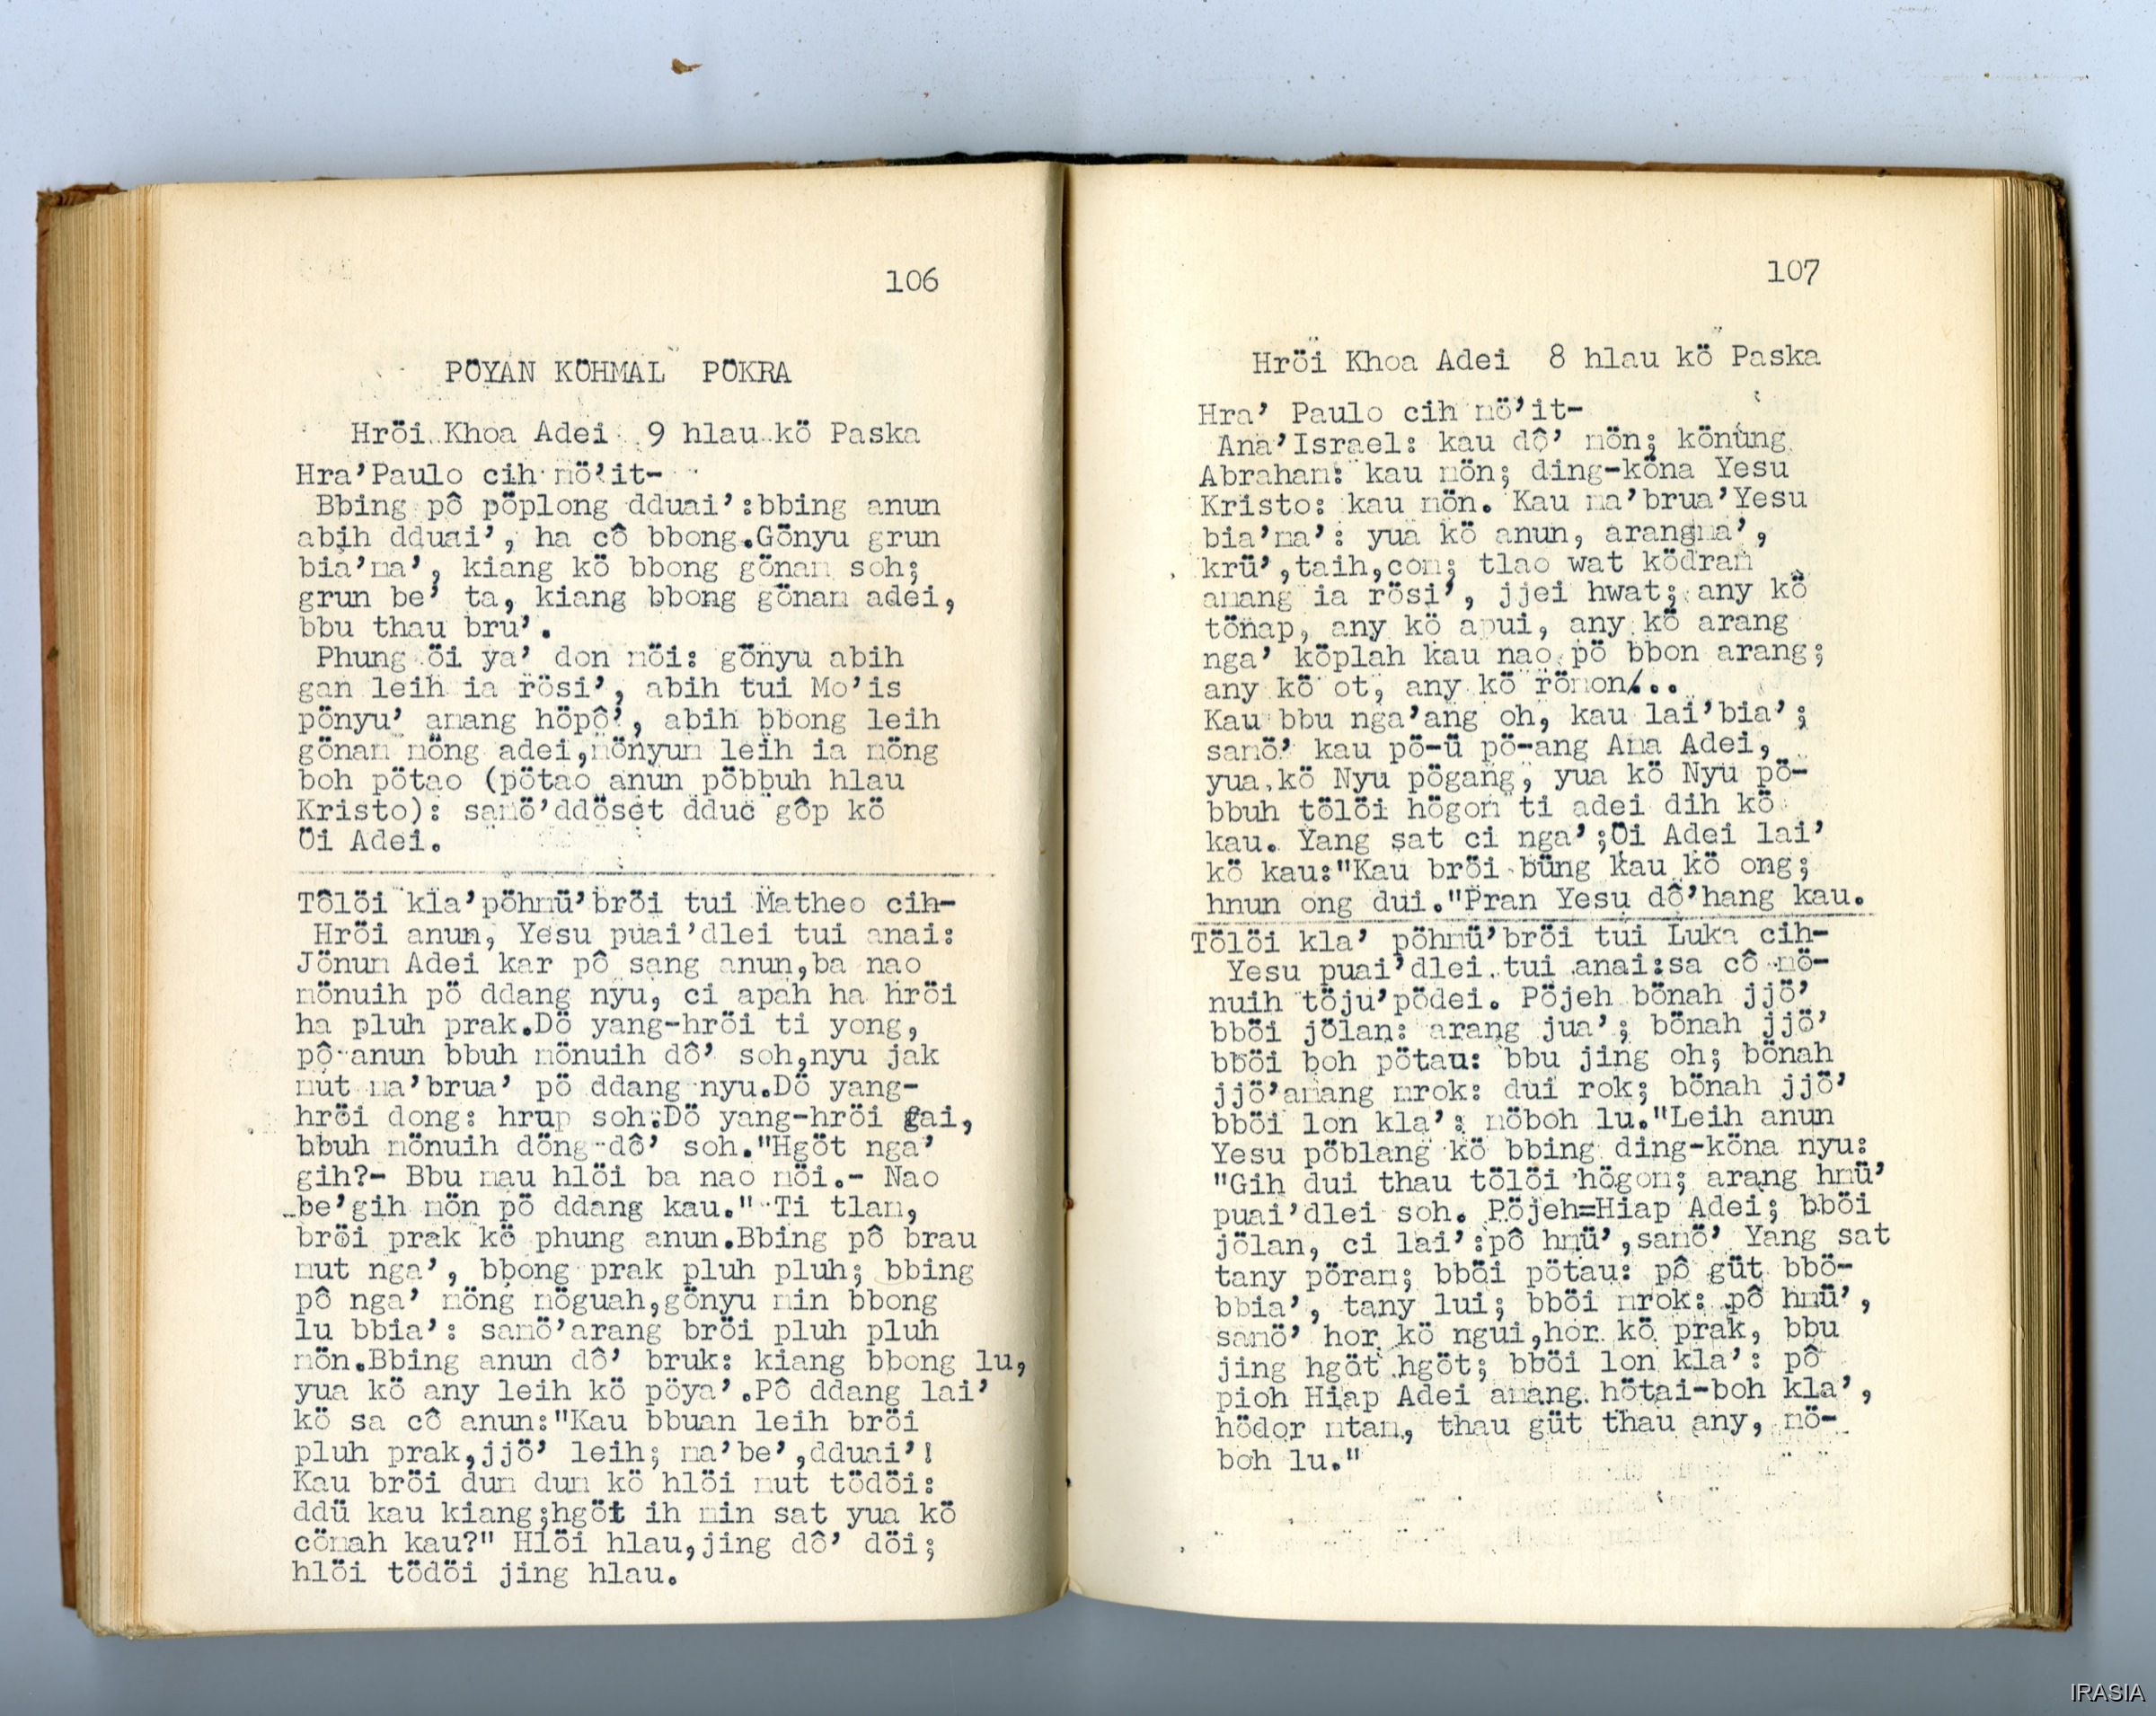 106
PÖYAN KÖHMAL PÖKRA
Hröi Khoa Adei 9 hlau kö Paska
Hra’Paulo cih mö’it-
Bbing pô pöplong dduai’:bbing anun
abih dduai’, ha cô bbong.Gönyu grun
bia’ma’, kiang kö bbong gönam soh;
grun be’ ta, kiang bbong gönam adei,
bbu thau bru’.
Phung öi ya’ don möi: gönyu abih
gan leih ia rösi’, abih tui Mo’is
pönyu’ amang höpô’, abih bbong leih
gönam möng adei,mönyum leih ia möng
boh pötao (pötao anun pöbbuh hlau
Kristo): samö’ddöset dduc gôp kö
Öi Adei.
Tôlöi kla’pöhmü’bröi tui Matheo cih-
Hröi anun, Yesu puai’dlei tui anai:
Jönum Adei kar pô sang anun,ba nao
mönuih pö ddang nyu, ci apah ha hröi
ha pluh prak.Dö yang-hröi ti yong,
pô anun bbuh mönuih dô’ soh,nyu jak
mut ma’brua’ pö ddang nyu.Dö yang-
hröi dong: hrup soh.Dö yang-hröi gai,
bbuh mönuih döng dô’ soh."Hgöt nga’
gih?- Bbu mau hlöi ba nao möi.- Nao
be’gih mön pö ddang kau." Ti tlam,
bröi prak kö phung anun.Bbing pô brau
mut nga’, bbong prak pluh pluh; bbing
pô nga’ möng möguah,gönyu min bbong
lu bbia’: samö’arang bröi pluh pluh
mön.Bbing anun dô’ bruk: kiang bbong lu,
yua kö any leih kö pöya’.Pô ddang lai’
kö sa cô anun:"Kau bbuan leih bröi
pluh prak,jjö’ leih; ma’be’,dduai’!
Kau bröi dum dum kö hlöi mut tödöi:
ddü kau kiang;hgöt ih min sat yua kö
cömah kau?" Hlöi hlau,jing dô’ döi;
hlöi tödöi jing hlau.
107
Hröi Khoa Adei 8 hlau kö Paska
Hra’ Paulo cih mö’it-
Ana’Israel: kau dô’ mön; könùng
Abraham: kau mön; ding-köna Yesu
Kristo: kau mön. Kau ma’brua’Yesu
bia’ma’: yua kö anun, arangma’,
krü’,taih,com; tlao wat ködram
amang ia rösi’, jjei hwat; any kö
tönap, any kö apui, any kö arang
nga’ köplah kau nao pö bbon arang;
any kö ot, any kö römon/..
Kau bbu nga’ang oh, kau lai’bia’;
samö’ kau pö-ü pö-ang Ama Adei,
yua kö Nyu pögang, yua kö Nyu pö-
bbuh tölöi högom ti adei dih kö
kau. Yang sat ci nga’;Öi Adei lai’
kö kau:"Kau bröi büng kau kö ong;
hnun ong dui."Pran Yesu dô’hang kau.
Tölöi kla’ pöhmü’bröi tui Luka cih-
Yesu puai’dlei tui anai:sa cô mö-
nuih töju’pödei. Pöjeh bönah jjö’
bböi jölan: arang jua’; bönah jjö’
bböi boh pötau: bbu jing oh; bönah
jjö’amang mrok: dui rok; bönah jjö’
bböi lon kla’: möboh lu."Leih anun
Yesu pöblang kö bbing ding-köna nyu:
"Gih dui thau tölöi högom; arang hmü’
puai’dlei soh. Pöjeh=Hiap Adei; bböi
jölan, ci lai’:pô hmü’,samö’ Yang sat
tany pöram; bböi pötau: pô güt bbö-
bbia’, tany lui; bböi mrok: pô hmü’,
samö’ hor kö ngui,hor kö prak, bbu
jing hgöt hgöt; bböi lon kla’: pô
pioh Hiap Adei amang hötai-boh kla’,
hödor mtam, thau güt thau any, mö-
boh lu."
IRASIA